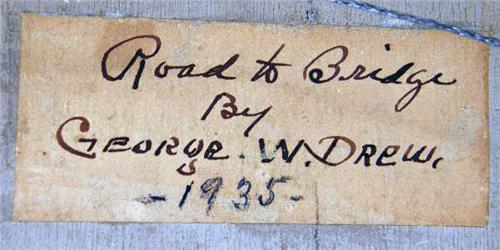 Road to Bridge
By
George. W. Drew.
- 1935 -